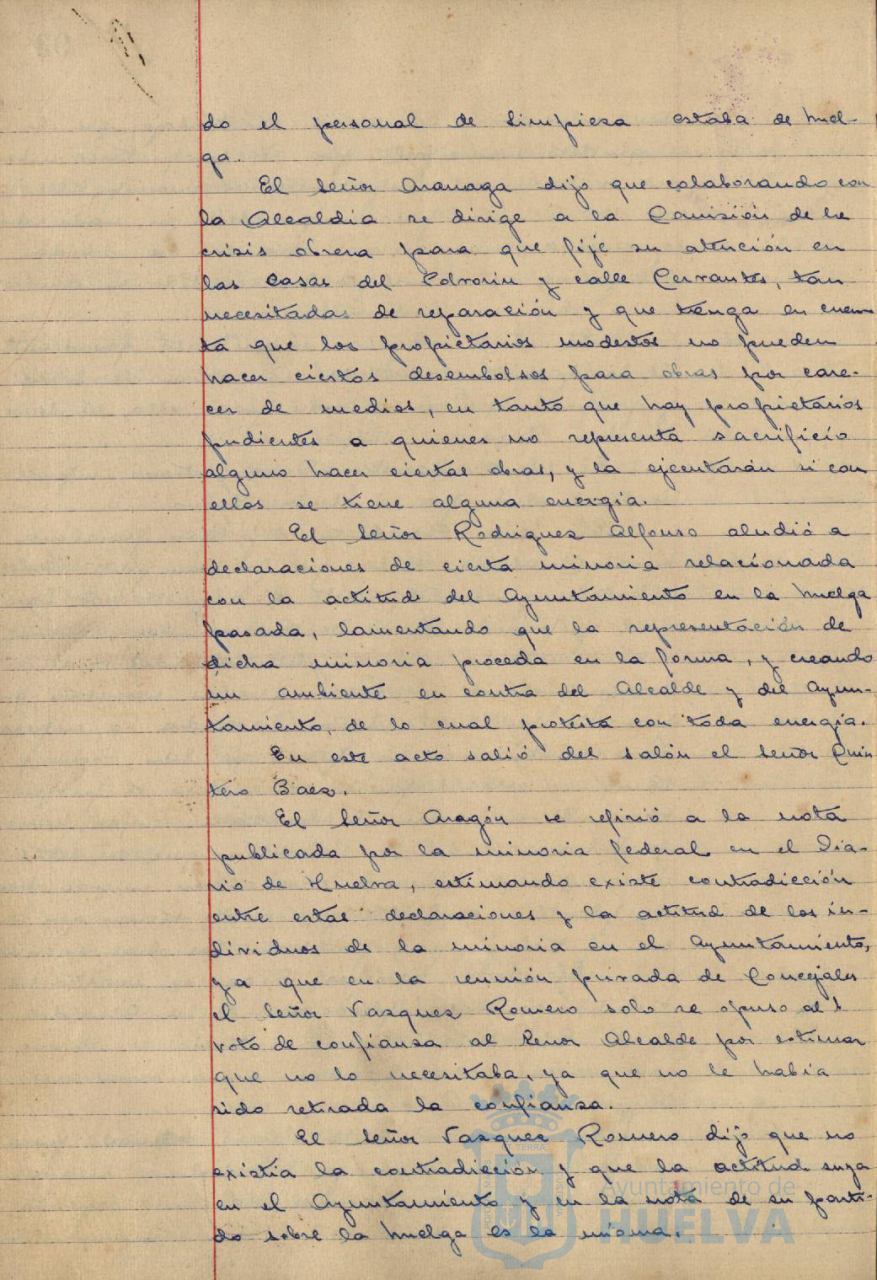 do el personal de limpieza estaba de huel-
ga.
El Señor Aranaga dijo que colaborando con
la Alcaldía se dirige a la Comisión de la
crisis obrera para que fije su atención en
las casas del y calle Cervantes, tan
necesitadas de reparación y que tenga en cuen-
ta que los propietarios modestos no pueden
hacer ciertos desembolsos para obras por care-
cer de medios, en tanto que hay propietarios
pudientes a quienes no representa sacrificio
alguno hacer ciertas obras, y la ejecutarán si con
ellos se tiene alguna energía.
El Señor Rodriguez Alfonso aludió a
declaraciones de cierta minoria relacionada
con la actitud del Ayuntamiento en la huelga
pasada, lamentando que la representación de
dicha minoria proceda en la forma, y creando
un ambiente en contra del Alcalde y del Ayun-
tamiento, de lo cual protesta con toda energía.
En este acto salió del salón el Señor Quin
tero Baez.
El Señor Aragón se refirió a la nota
publicada por la minoria federal en el Dia-
rio de Huelva, estimando existe contradicción
entre estas declaraciones y la actitud de los in-
dividuos de la minoria en el Ayuntamiento,
ya que en la reunión privada de Concejales
el Señor Vazquez Romero solo se opuso al
voto de confianza al Señor Alcalde por estimar
que no lo necesitaba, ya que no le había
sido retirada la confianza.
El Señor Vazquez Romero dijo que no
existía la contradicción y que la actitud suya
en el Ayuntamiento y en la nota de su parti-
do sobre la huelga es la misma.
Ayuntamiento de
HUELVA